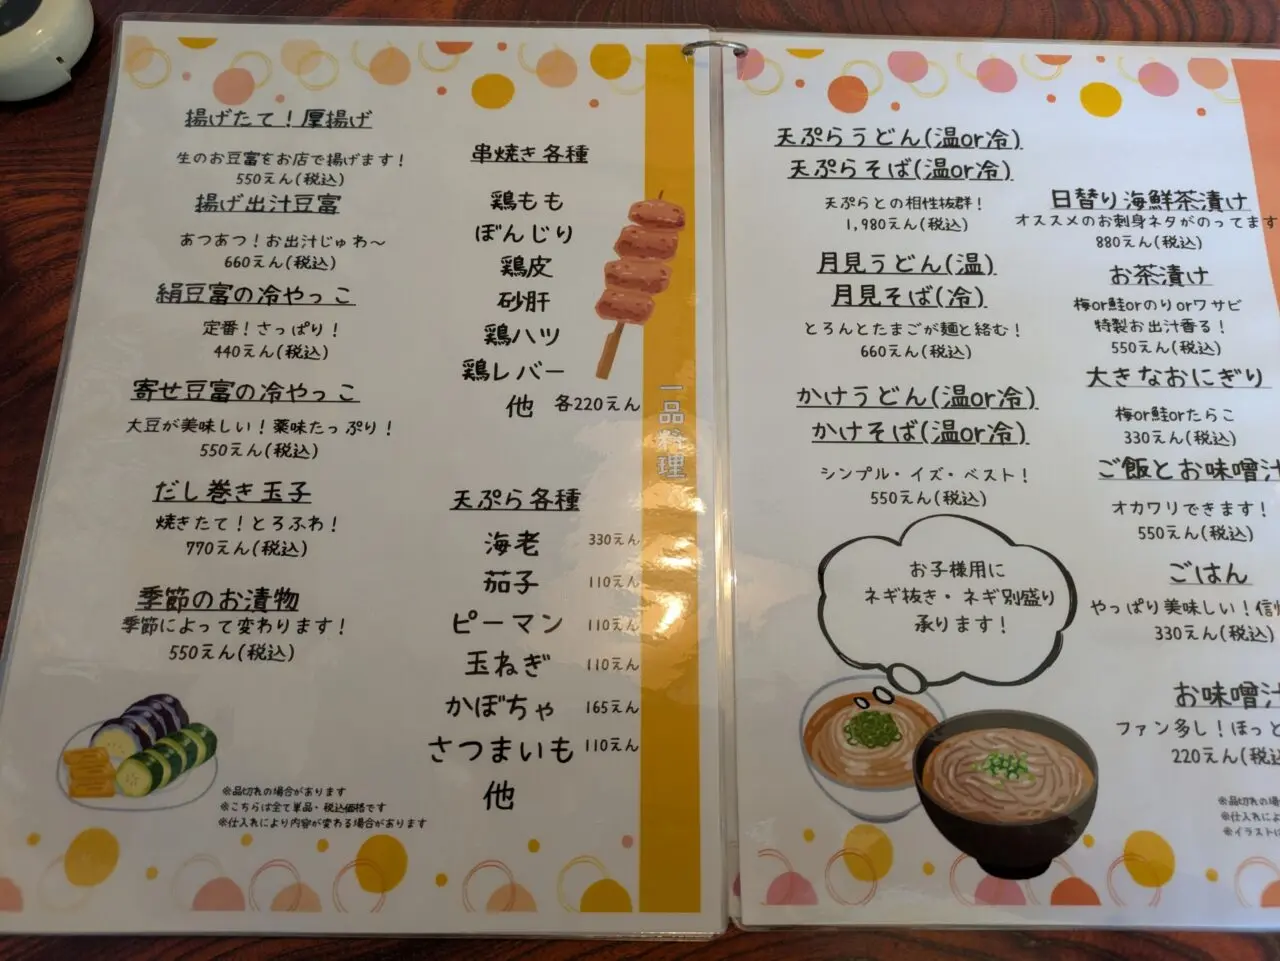 揚げたて！厚揚げ
生のお豆富をお店で揚げます！
550えん(税込)
揚げ出汁豆富
あつあつ！お出汁じゅわ～
660えん(税込)
絹豆富の冷やっこ
定番！さっぱり！
440えん(税込)
寄せ豆富の冷やっこ
大豆が美味しい！薬味たっぷり！
550えん(税込)
だし巻き玉子
焼きたて！とろふわ！
770えん(税込)
季節のお漬物
季節によって変わります！
550えん(税込)
※品切れの場合があります
※こちらは全て単品・税込価格です
※仕入れにより内容が変わる場合があります
串焼き各種
鶏もも
ぼんじり
鶏皮
砂肝
鶏ハツ
鶏レバー
他 各220えん
天ぷら各種
海老 330えん
茄子 110えん
ピーマン 110えん
玉ねぎ 110えん
かぼちゃ 165えん
さつまいも 110えん
他
一品料理
天ぷらうどん(温or冷)
天ぷらそば(温or冷)
天ぷらとの相性抜群！
1,980えん(税込)
月見うどん(温)
月見そば(冷)
とろんとたまごが麺と絡む！
660えん(税込)
かけうどん(温or冷)
かけそば(温or冷)
シンプル・イズ・ベスト！
550えん(税込)
お子様用に
ネギ抜き・ネギ別盛り
承ります！
日替り海鮮茶漬け
オススメのお刺身ネタがのってます
880えん(税込)
お茶漬け
梅or鮭orのりorワサビ
特製お出汁香る！
550えん(税込)
大きなおにぎり
梅or鮭orたらこ
330えん(税込)
ご飯とお味噌汁
オカワリできます！
550えん(税込)
ごはん
やっぱり美味しい！信
330えん(税込)
お味噌汁
ファン多し！ほっと
220えん(税込
※品切れの場
※仕入れによ
※イラストに